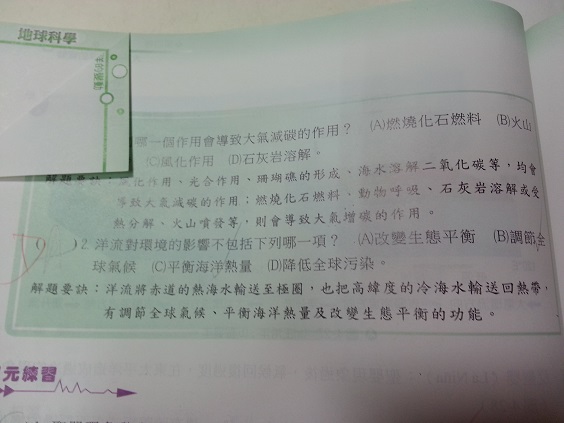 地球科學
哪一個作用會導致大氣減碳的作用？ (A)燃燒化石燃料 (B)火山
(C)風化作用 (D)石灰岩溶解。
解題要訣：風化作用、光合作用、珊瑚礁的形成、海水溶解二氧化碳等，均會
導致大氣減碳的作用；燃燒化石燃料、動物呼吸、石灰岩溶解或受
熱分解、火山噴發等，則會導致大氣增碳的作用。
( )2.洋流對環境的影響不包括下列哪一項？ (A)改變生態平衡 (B)調節全
球氣候 (C)平衡海洋熱量 (D)降低全球污染。
解題要訣：洋流將赤道的熱海水輸送至極圈，也把高緯度的冷海水輸送回熱帶，
有調節全球氣候、平衡海洋熱量及改變生態平衡的功能。
元練習